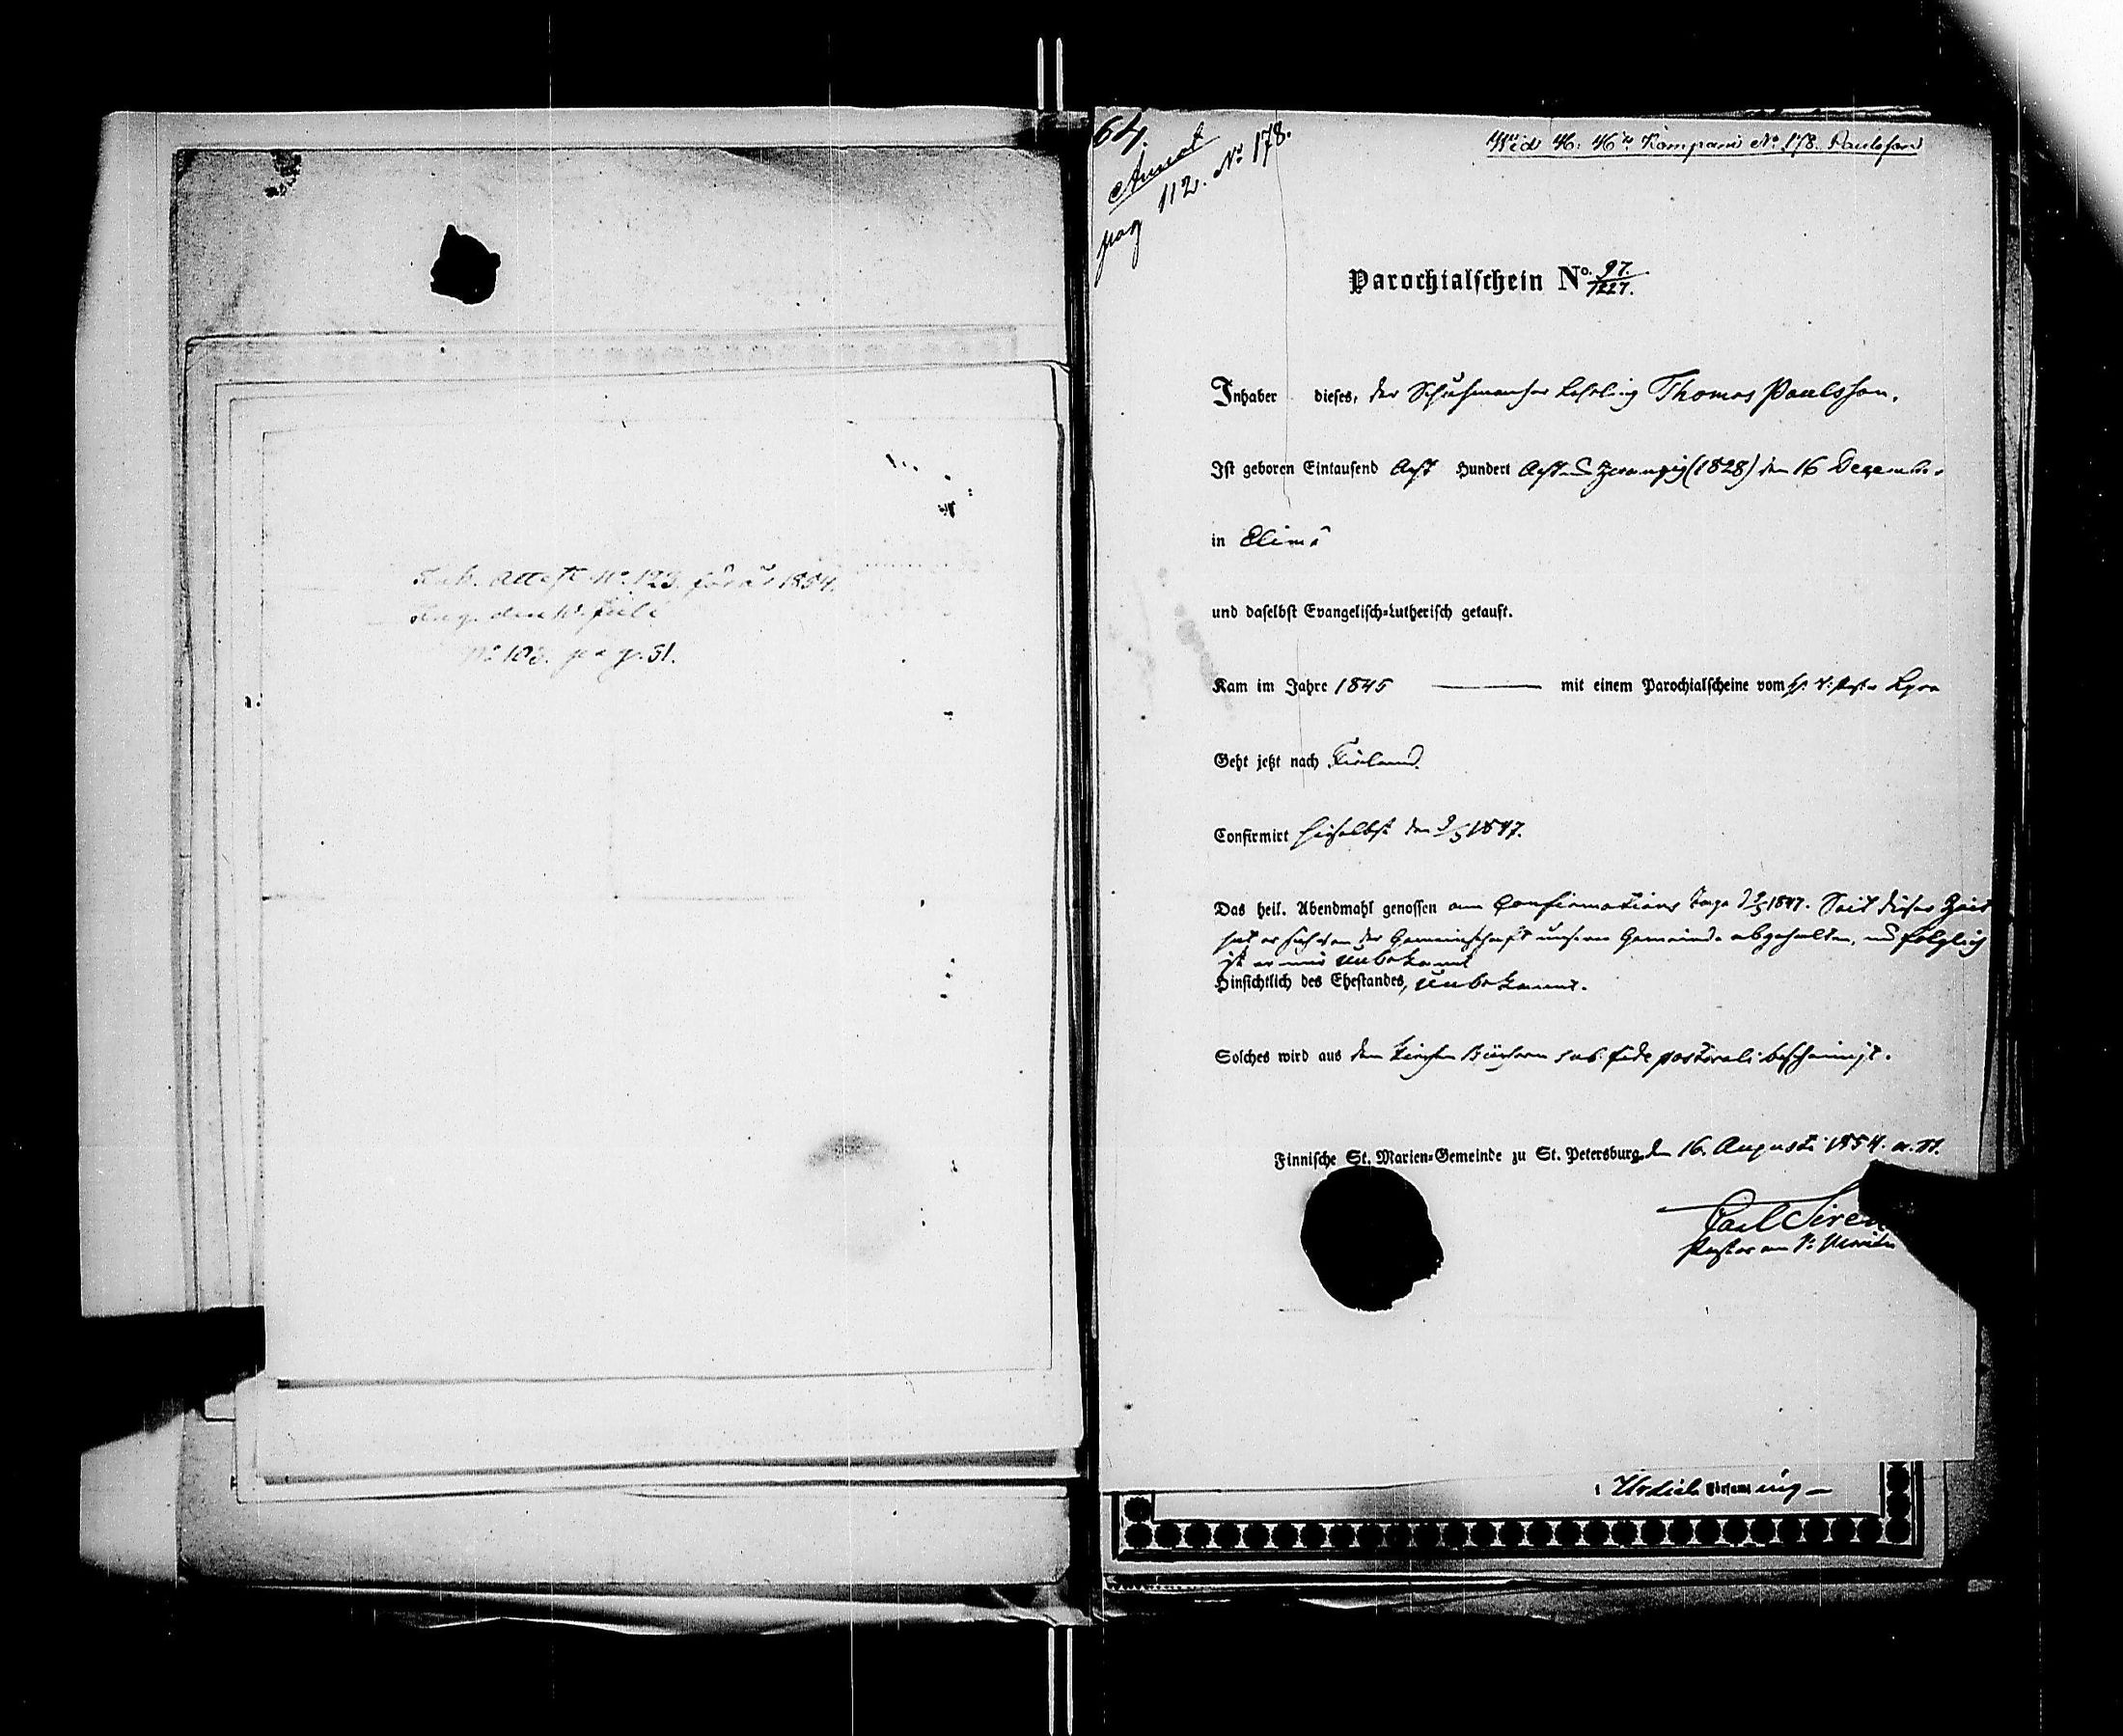 Inb. Attest No 123. för år 1854.
den 10 Juli
No 103. pag. 31.
64.
Annot
pag 112. No 178.
Wid 46: 46te Kompani No 178. Paulsson
Parochialschein No. 97./1227.
Inhaber dieses, der Schuhmacher Lehrling Thomas Paulsson.
Ist geboren Eintausend Acht Hundert Acht und Zwanzig (1828) den 16 December
in Elimä
und daselbst Evangelisch-Lutherisch getauft.
Kam im Jahre 1845 — mit einem Parochialscheine vom H. V. Pastor
Geht jetzt nach Finland.
Confirmirt hieselbst den 9/5 1847.
Das heil. Abendmahl genossen am Confirmations Tage d 9/5 1847. Seit dieser Zeit
hat er sich von der Gemeinschaft unserer Gemeinde abgehalten, und folglich
ist er mir unbekannt
Hinsichtlich des Ehestandes, unbekannt.
Solches wird aus den Kirchen Büchern sub fide pastorali bescheinigt.
Finnische St. Marien-Gemeinde zu St. Petersburg den 16. Augusti 1854. a. St.
Carl Siren
Pastor an St. Marien